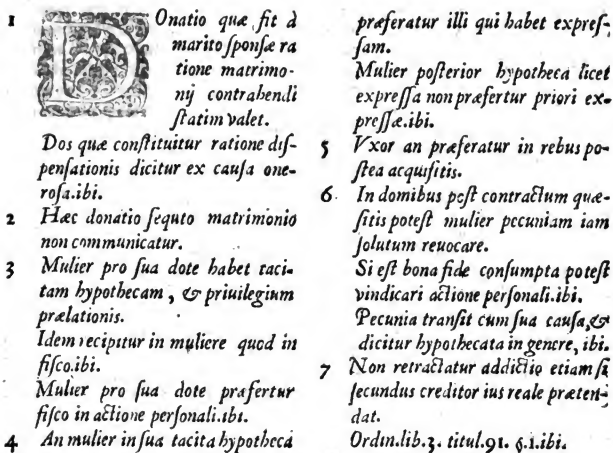 1 DOnatio quæ fit à
marito ſponſæ ra
tione matrimo-
nij contrahendi
ſtatim valet.
Dos quæ conſtituitur ratione diſ-
penſationis dicitur ex cauſa one-
roſa.ibi.
2 Hæc donatio ſequto matrimonio
non communicatur.
3 Mulier pro ſua dote habet taci-
tam hypothecam, & priuilegium
prælationis.
Idem recipitur in muliere quod in
fiſco.ibi.
Mulier pro ſua dote præfertur
fiſco in actione perſonali.ibi.
4 An mulier in ſua tacita hypotheca
præferatur illi qui habet expreſ-
ſam.
Mulier poſterior hypotheca licet
expreſſa non præfertur priori ex-
preſſæ.ibi.
5 Vxor an præferatur in rebus po-
ſtea acquiſitis.
6. In domibus poſt contractum quæ-
ſitis poteſt mulier pecuniam iam
ſolutum reuocare.
Si eſt bona fide conſumpta poteſt
vindicari actione perſonali.ibi.
Pecunia tranſit cum ſua cauſa,&
dicitur hypothecata in genere, ibi.
7 Non retractatur addictio etiam ſi
ſecundus creditor ius reale præten-
dat.
Ordin.lib.3. titul.91. §.1.ibi.